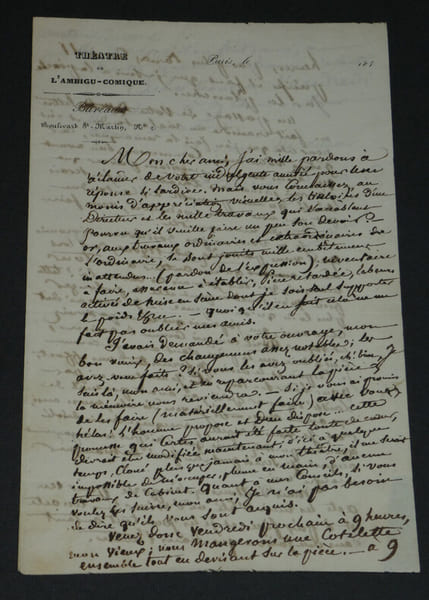 THÉÂTRE
DE
L'AMBIGU-COMIQUE.
Paris, le 183
Bureau
Boulevard St-Martin, No 2.
Mon cher ami, j'ai mille pardons à
réclamer de votre indulgente amitié pour une
réponse si tardive. Mais vous connaissez, au
moins d'appréciation les d'un
Directeur et les mille travaux qui l'accablent
pourvu qu'il veuille faire un peu son devoir.
or, aux travaux ordinaires et extraordinaires de
l'ordinaire, se sont joints mille embêtements
inattendus (pardon de l'expression), inventaire
à faire, à établir, pièce tardée, labeurs
actives de mise en scène dont je suis seul supporter
le poids Quoi qu'il en soit cela ne me
fait pas oublier mes amis.
J'avais demandé à votre ouvrage, mon
bon vieux, des changements assez notables; les
avez-vous faits? Si vous les avez oubliés, eh! bien, je
suis là, mon ami, et en reparcourant la pièce
la mémoire nous reviendra. Si je vous ai promis
de les faire (matériellement faire) avec vous
hélas! l'homme propose et Dieu dispose... cette
promesse qui certes aurait été faite toute de cœur,
devrait être modifiée maintenant, d'ici à quelque
temps. Cloué plus que jamais à mon théâtre, il me serait
impossible de m'occuper, plume en main, d'aucun
travaux de Cabinet. Quant à mes Conseils, si vous
voulez les suivre, mon ami, je n'ai pas besoin
de dire qu'ils vous sont acquis.
Venez donc Vendredi prochain à 9 heures,
mon vieux; nous mangerons une Cotelette
ensemble tout en devisant sur la pièce. à 9